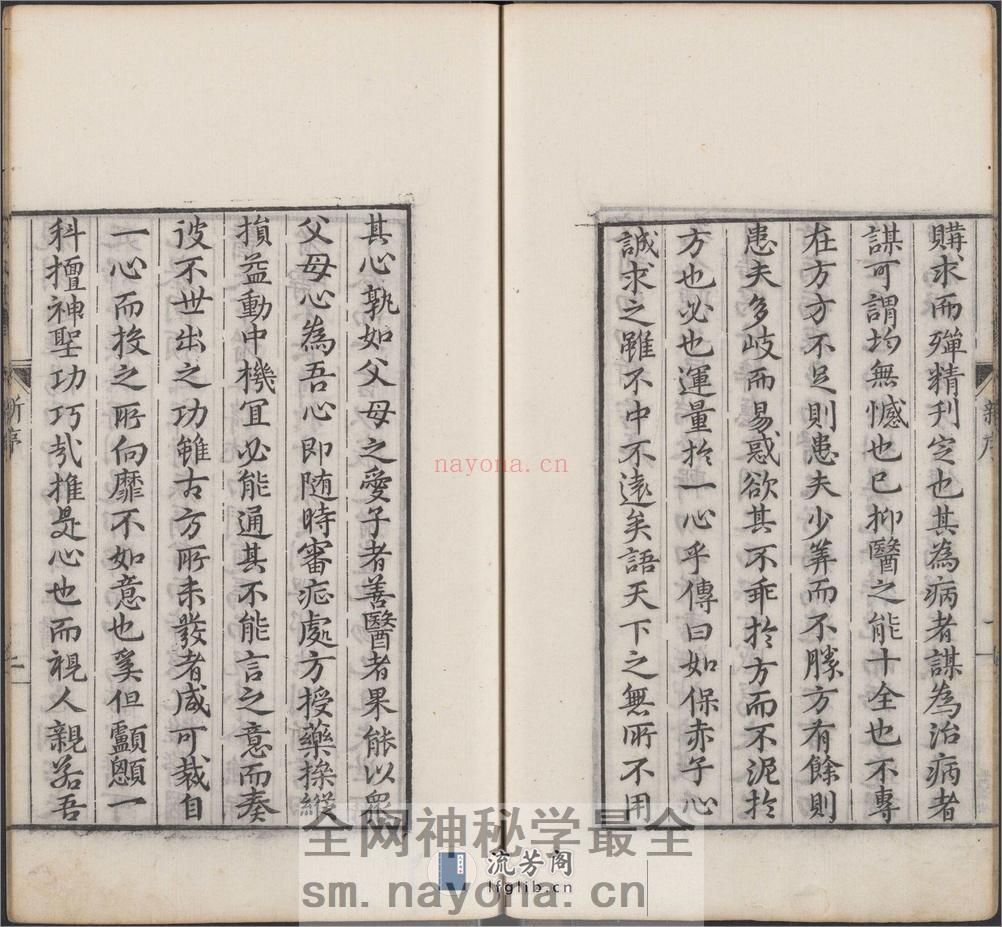 購求而殫精刋定也其為病者謀為治病者
謀可謂均無憾也已抑醫之能十全也不專
在方方不足則患夫少筭而不勝方有餘則
患夫多岐而易惑欲其不乖於方而不泥於
方也必也運量於一心乎傳曰如保赤子心
誠求之雖不中不遠矣語天下之無所不用
其心孰如父母之愛子者善醫者果能以衆
父母心為吾心即随時審症處方授藥操縱
損益動中機冝必能通其不能言之意而奏
彼不世出之功雖古方所未發者咸可裁自
一心而投之所向靡不如意也奚但顱顖一
科擅神聖功巧㢤推是心也而視人親若吾
新序
一
新序
二
nayona.cn
全网神秘学最全
流芳阁
lfglib.cn
sm.nayona.cn